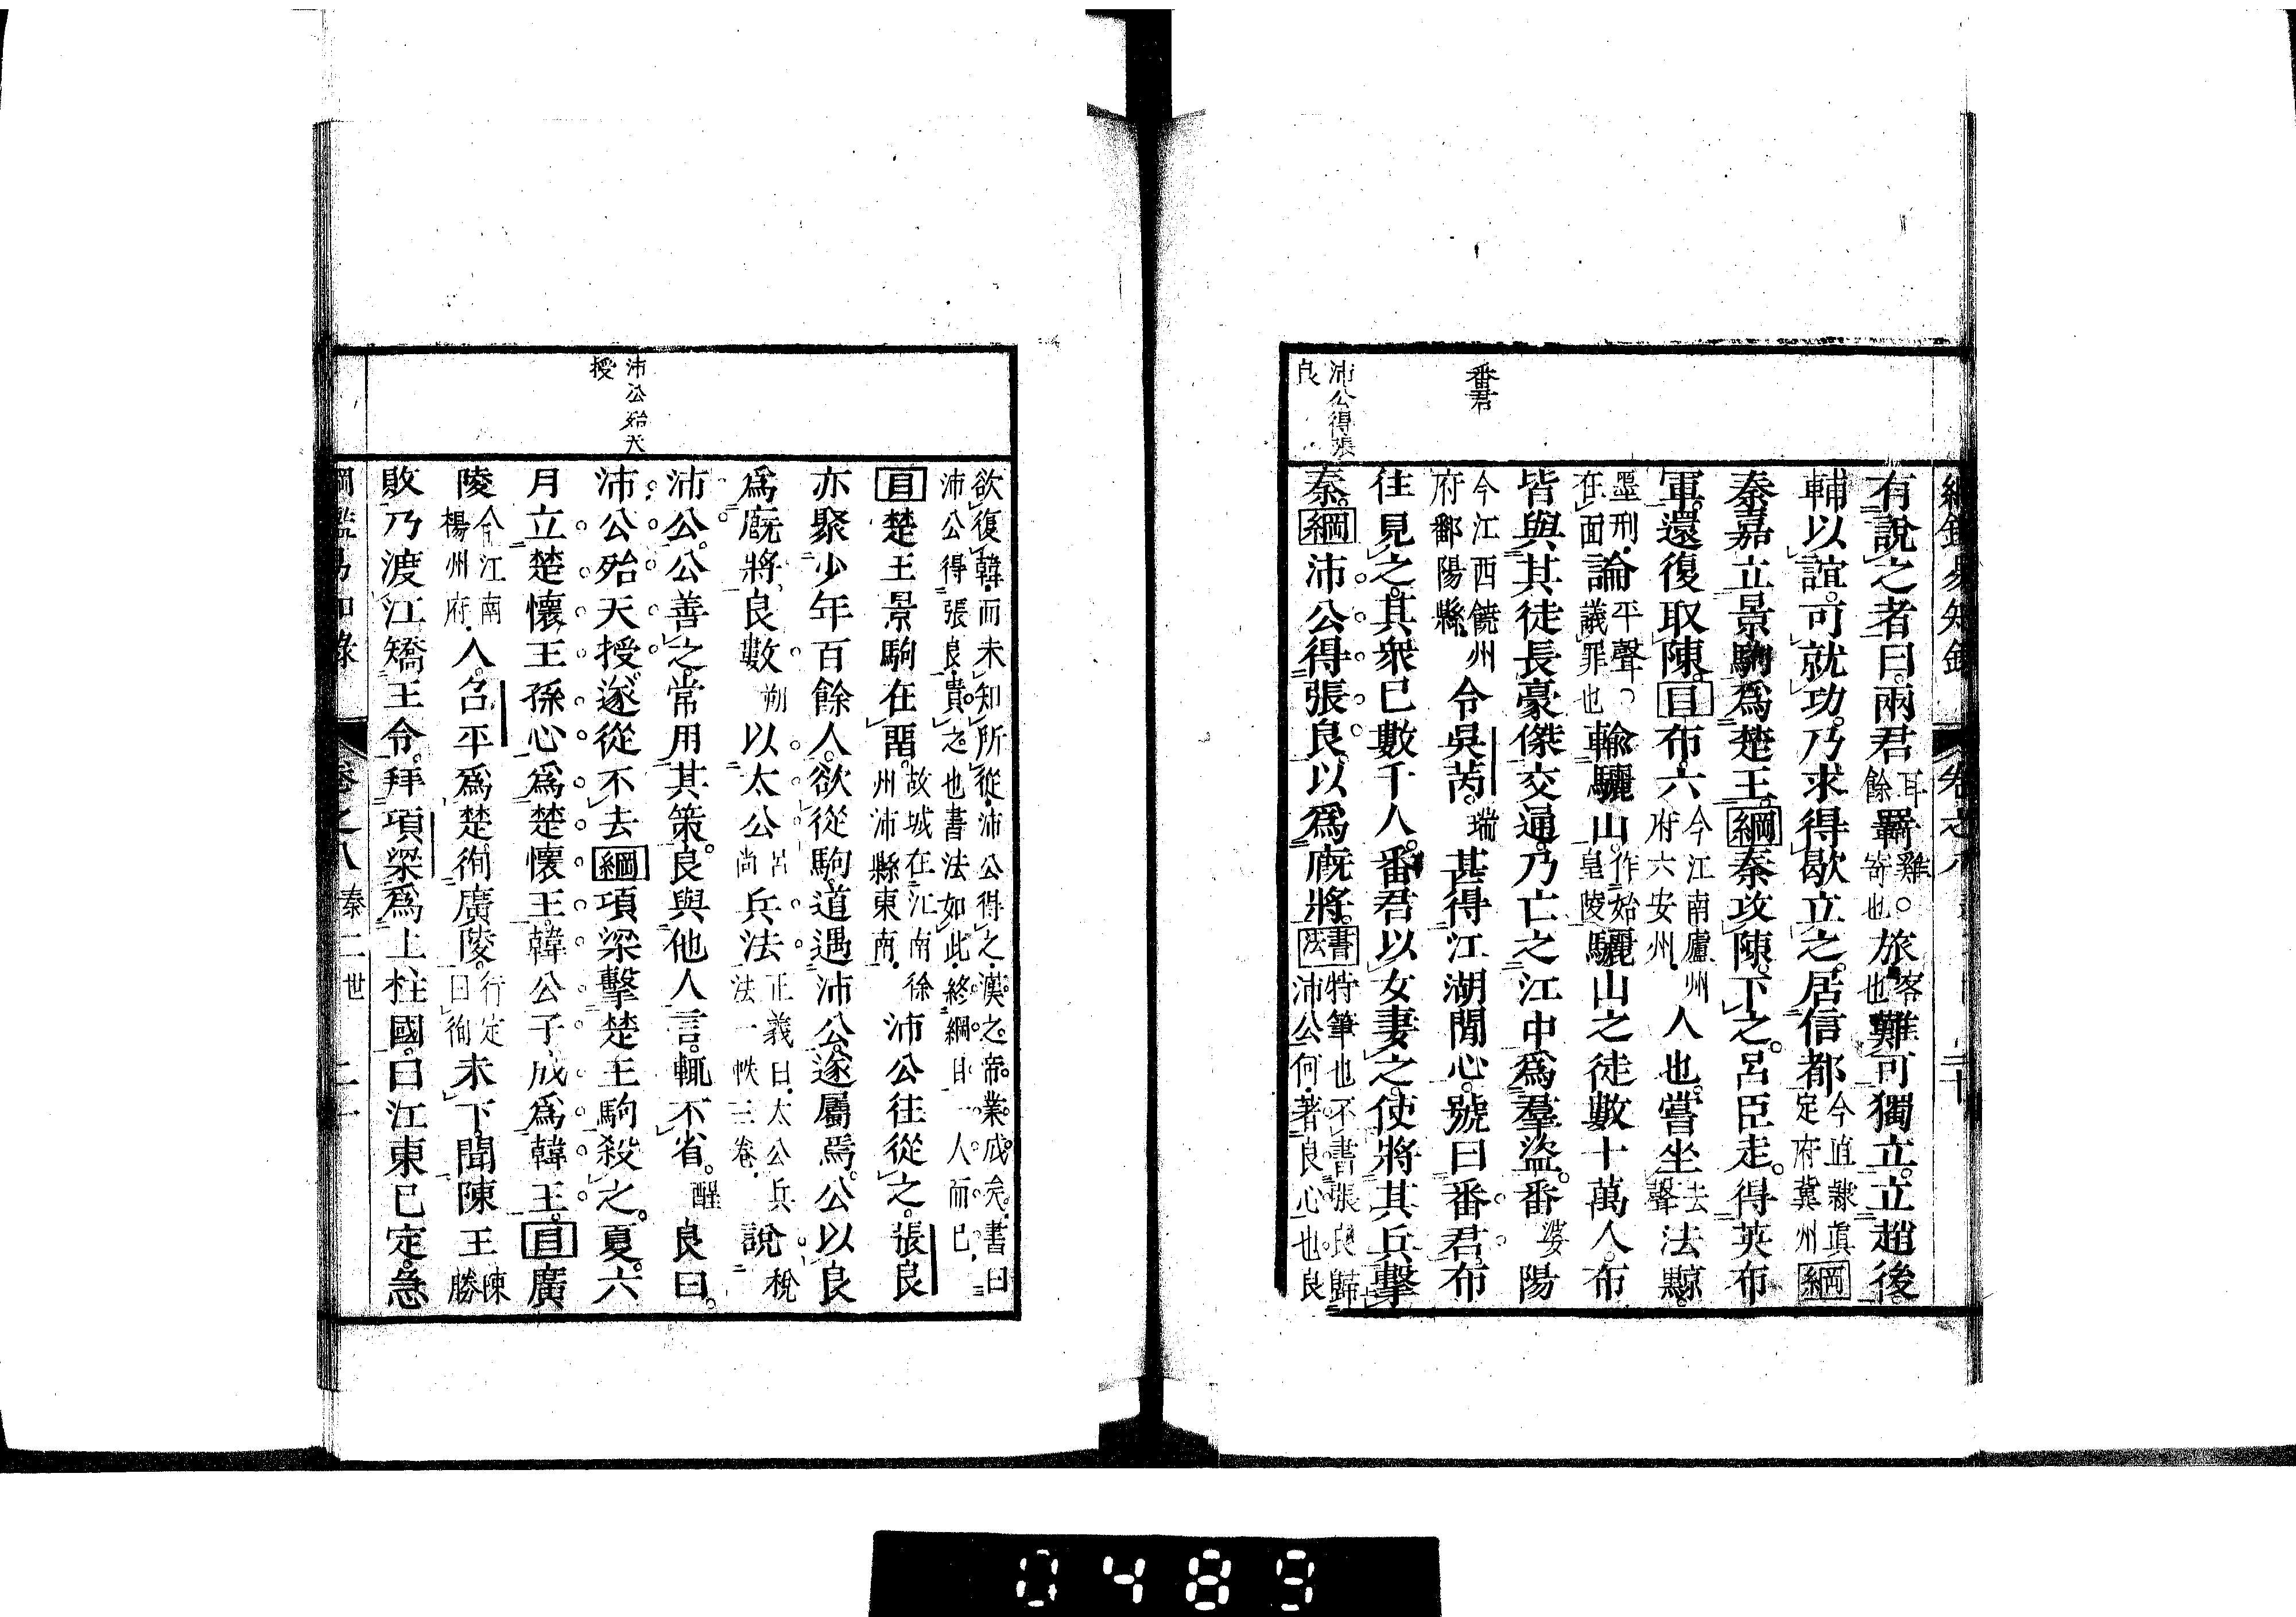 番君
沛公得張
良
有說之者曰。兩君耳餘羇雞。寄也旅。客也難可獨立。立趙後。
輔以誼。可就功。乃求得歇立之。居信都今直隸眞定府冀州綱
秦嘉立景駒爲楚王。綱秦攻陳。下之。呂臣走。得英布
軍。還復取陳。目布六今江南廬州府六安州。人也。嘗坐去聲法黥。
墨刑。在面論平聲。議罪也輸驪山。作始皇陵驪山之徒數十萬人。布
皆與其徒長豪傑交通。乃亡之江中爲羣盜。番婆陽
今江西饒州府鄱陽縣。令吳芮。瑞甚得江湖閒心。號曰番君。布
往見之。其衆已數千人。番君以女妻之。使將其兵擊
秦。綱沛公得張良。以爲廐將。書法特筆也不書張良歸沛公何。著良心也。良
沛公殆天
授
欲復韓。而未知所從。沛公得之。漢之帝業成矣。書曰沛公得張良。貴之也書法如此。終綱目一人而已。
目楚王景駒在畱。故城在江南徐州沛縣東南。沛公往從之。張良
亦聚少年百餘人。欲從駒。道遇沛公。遂屬焉。公以良
爲廐將。良數朔以太公呂尚兵法正義曰。太公兵法一帙三卷。說稅
沛公。公善之。常用其策。良與他人言。輒不省。醒良曰。
沛公殆天授。遂從不去綱項梁擊楚王駒殺之。夏。六
月立楚懷王孫心爲楚懷王。韓公子成爲韓王。目廣
陵今江南楊州府。人。召平爲楚。徇廣陵。行定曰徇未下。聞陳王陳勝
敗乃渡江矯王令。拜項梁爲上柱國。曰江東已定。急
綱鑑易知錄 卷之八 秦二世 二十一